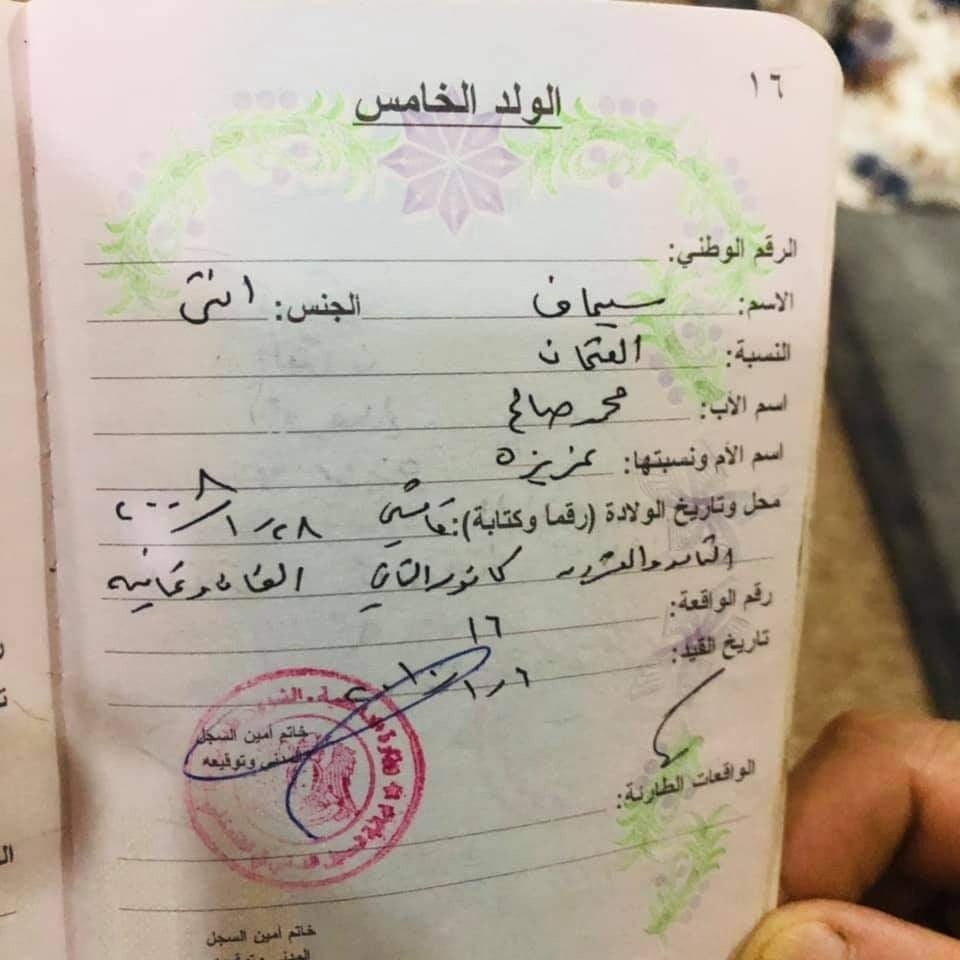 ١٦
الولد الخامس
الرقم الوطني:
الاسم: سيماف الجنس: انثى
النسبة: العثمان
اسم الأب: محمد صالح
اسم الأم ونسبتها: عزيزة
محل وتاريخ الولادة (رقما وكتابة): قامشلي ٢٨/١/٢٠٠٨
الثامن والعشرون كانون الثاني الفان وثمانية
رقم الواقعة: ١٦
تاريخ القيد: ٦/١/٢٠١٠
خاتم أمين السجل
المدني وتوقيعه
الواقعات الطارئة:
خاتم أمين السجل
المدني وتوقيعه